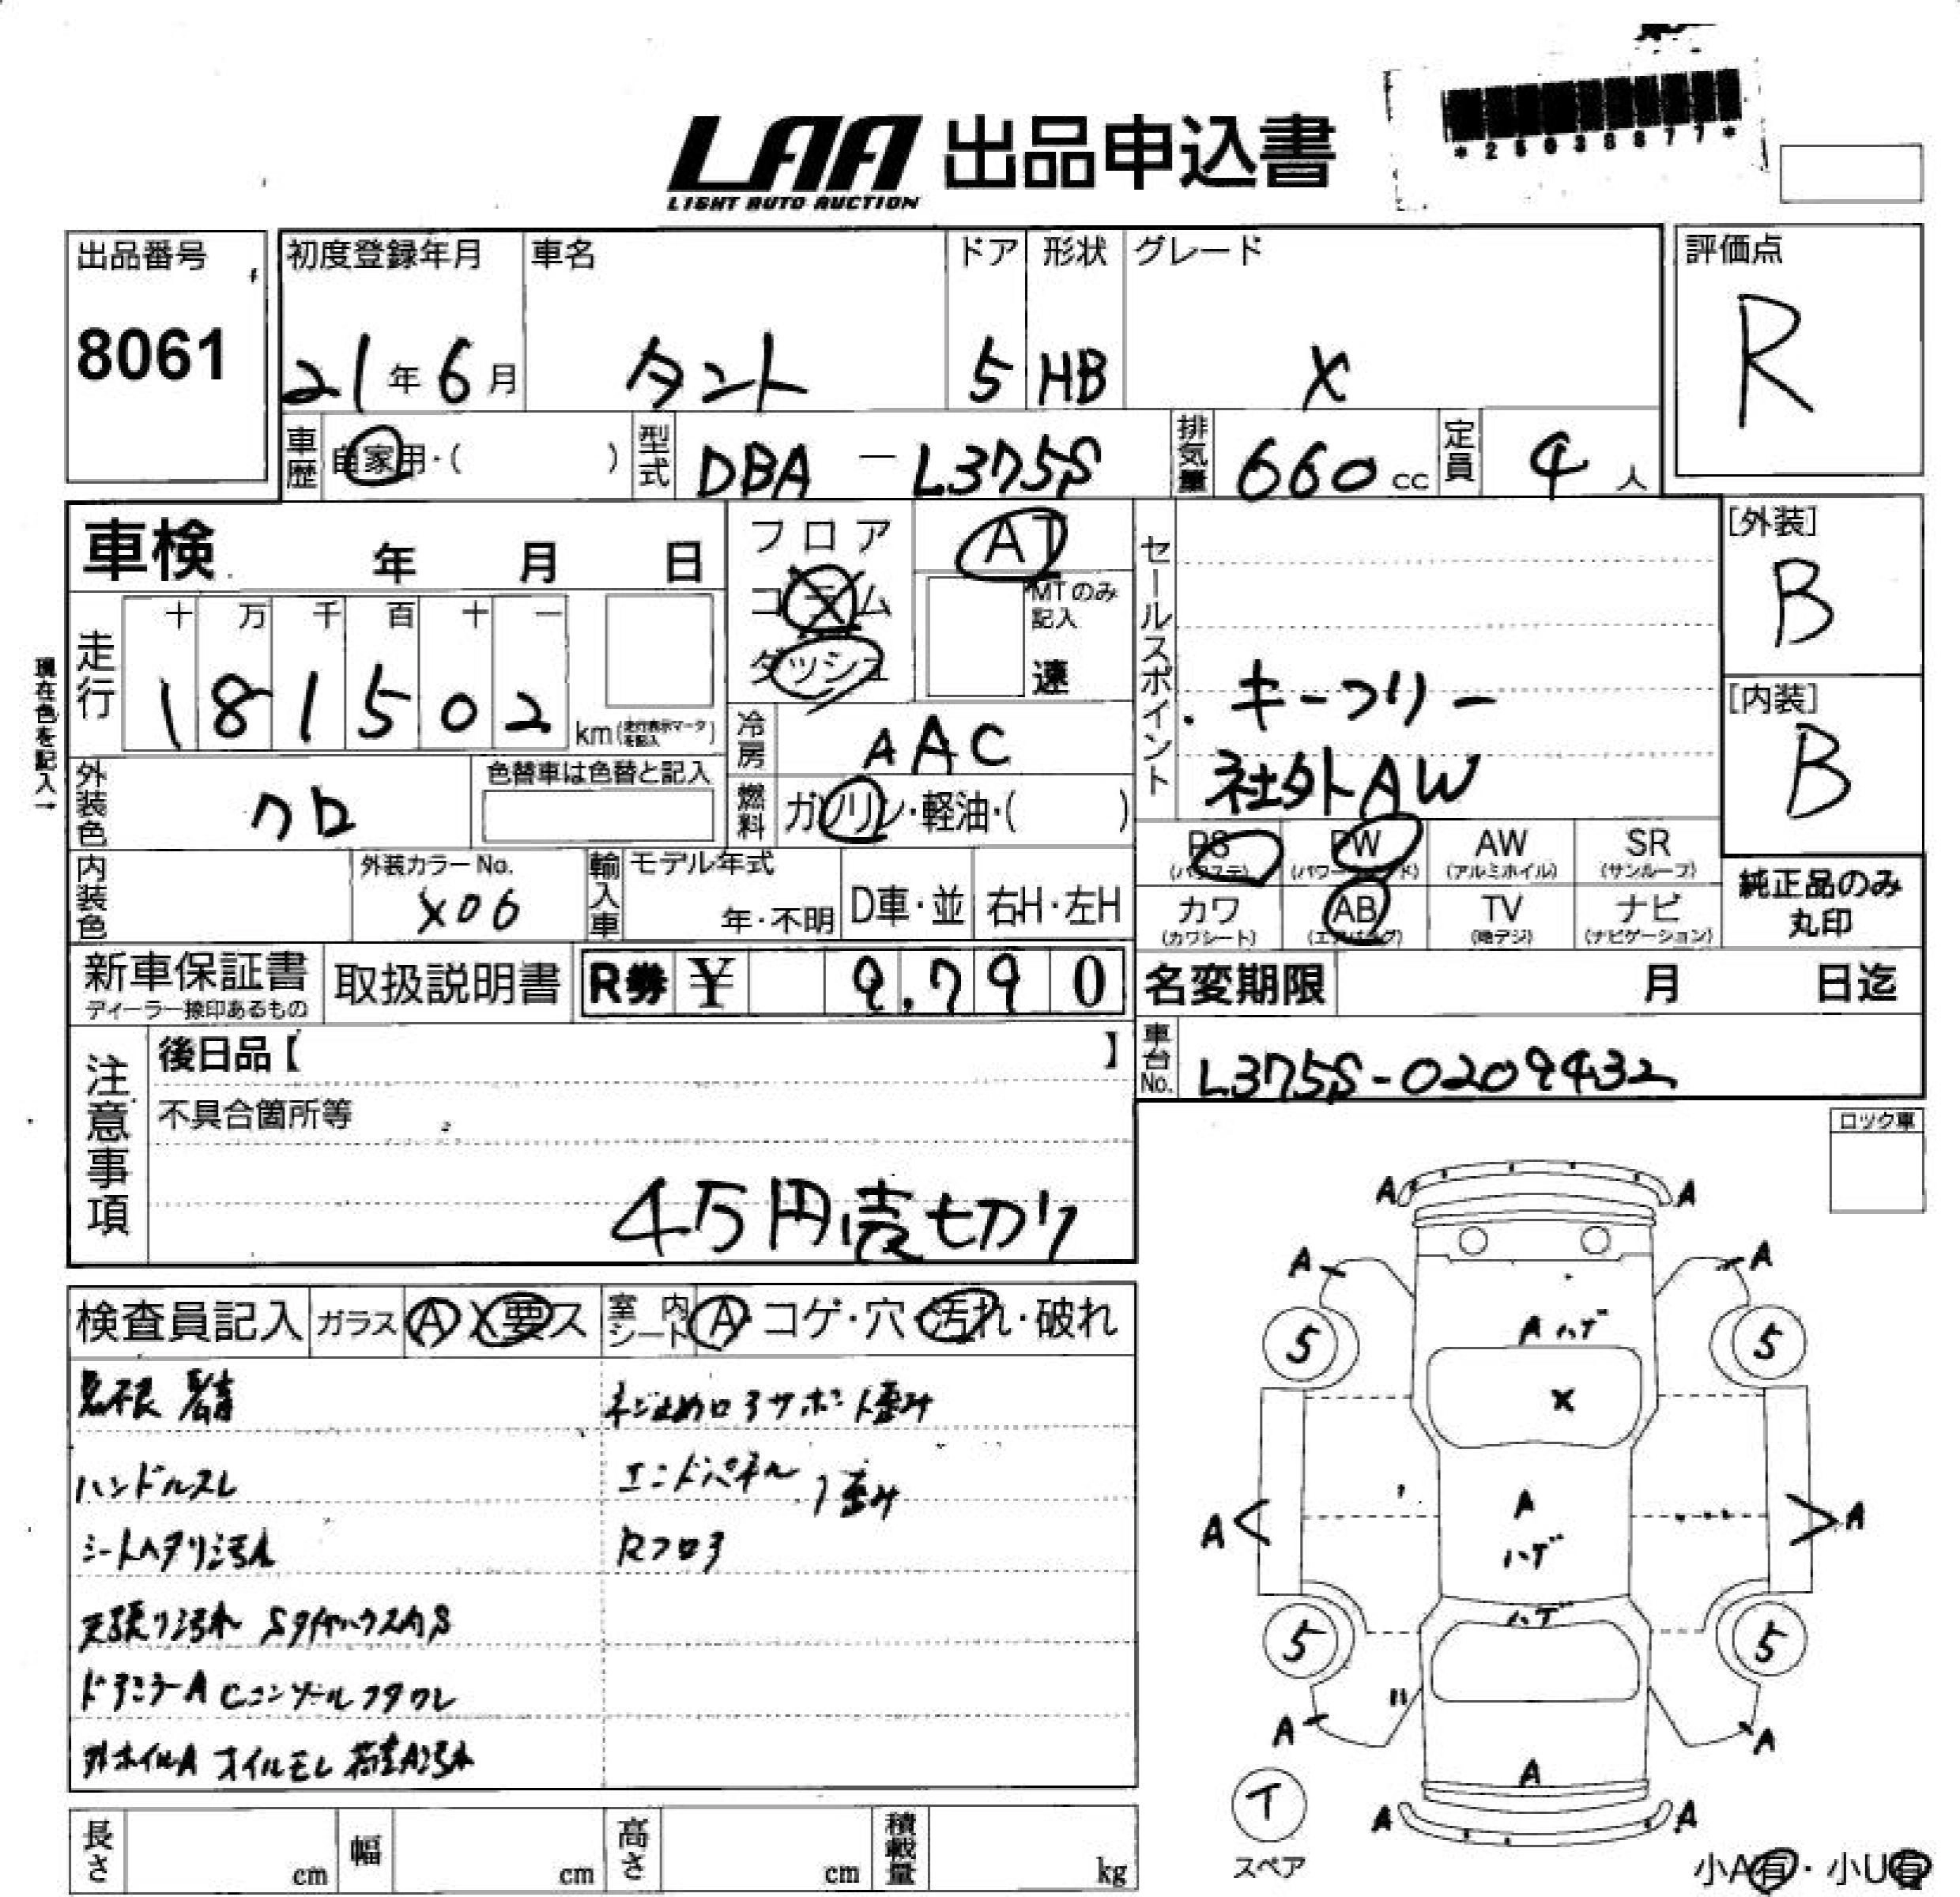 LAA 出品申込書
LIGHT AUTO AUCTION
*25038877*
出品番号
8061
初度登録年月 車名 ドア 形状 グレード
21年6月 タント 5 HB X
評価点
R
車歴 自家用・( ) 型式 DBA-L375S 排気量 660cc 定員 4人
車検 年 月 日
フロア
コラム
ダッシュ
AT
MTのみ記入
速
走行 十 万 千 百 十 一
181502 km(走行表示マークを記入)
現在色を記入→
冷房 AAC
燃料 ガソリン・軽油・( )
外装色 クロ 色替車は色替と記入
内装色 外装カラーNo. X06
輸入車 モデル年式 年・不明 D車・並 右H・左H
セールスポイント
・キーフリー
社外AW
[外装]
B
[内装]
B
PS (パワステ) PW AW (アルミホイル) SR (サンルーフ)
カワ (カワシート) AB (エアバッグ) TV (地デジ) ナビ (ナビゲーション)
純正品のみ
丸印
新車保証書
ディーラー捺印あるもの
取扱説明書 R券 ¥ 9,790
名変期限 月 日迄
車台No. L375S-0209432
注意事項
後日品【 】
不具合箇所等
4万円売切り
ロック車
検査員記入 ガラス A X 要ス 室内シート A・コゲ・穴・汚れ・破れ
ハンドルスレ
シートヘタリ汚れ
天張り汚れ
ドアミラーA Cコンソールフタワレ
外ホイルA オイルモレ 荷室A汚れ
ネジ止めロアサポート歪み
エンドパネル 歪み
Rフロア
A A
A A
5 Aハゲ 5
X
A A A
ハゲ
ハゲ
5 5
A A
A
T
スペア
A A
小A有・小U有
長さ cm 幅 cm 高さ cm 積載量 kg